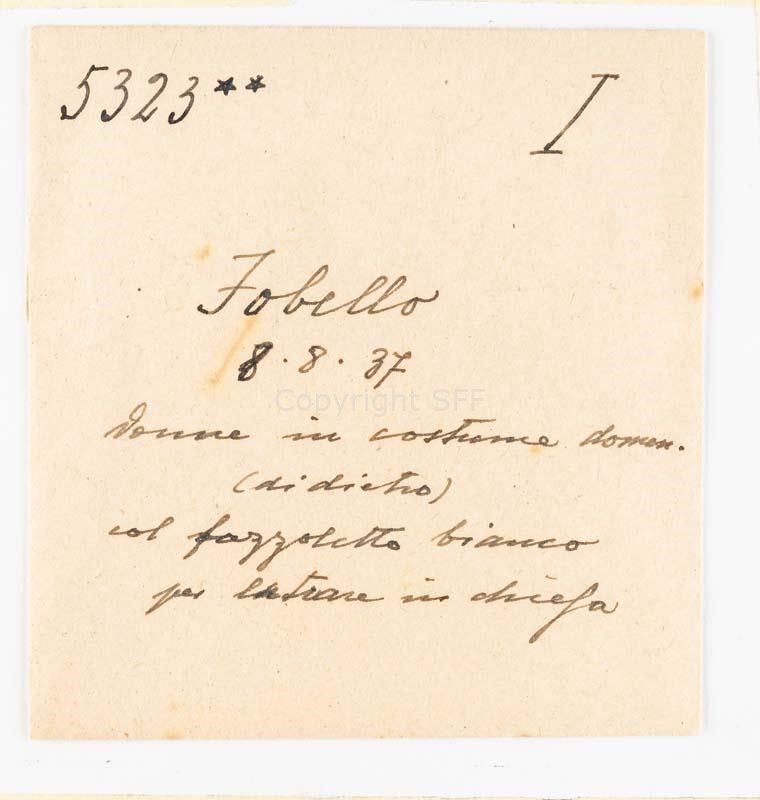 5323**
I
Fobello
8.8.37
Copyright SFF
donne in costume domen.
(di dietro)
col fazzoletto bianco
per entrare in chiesa